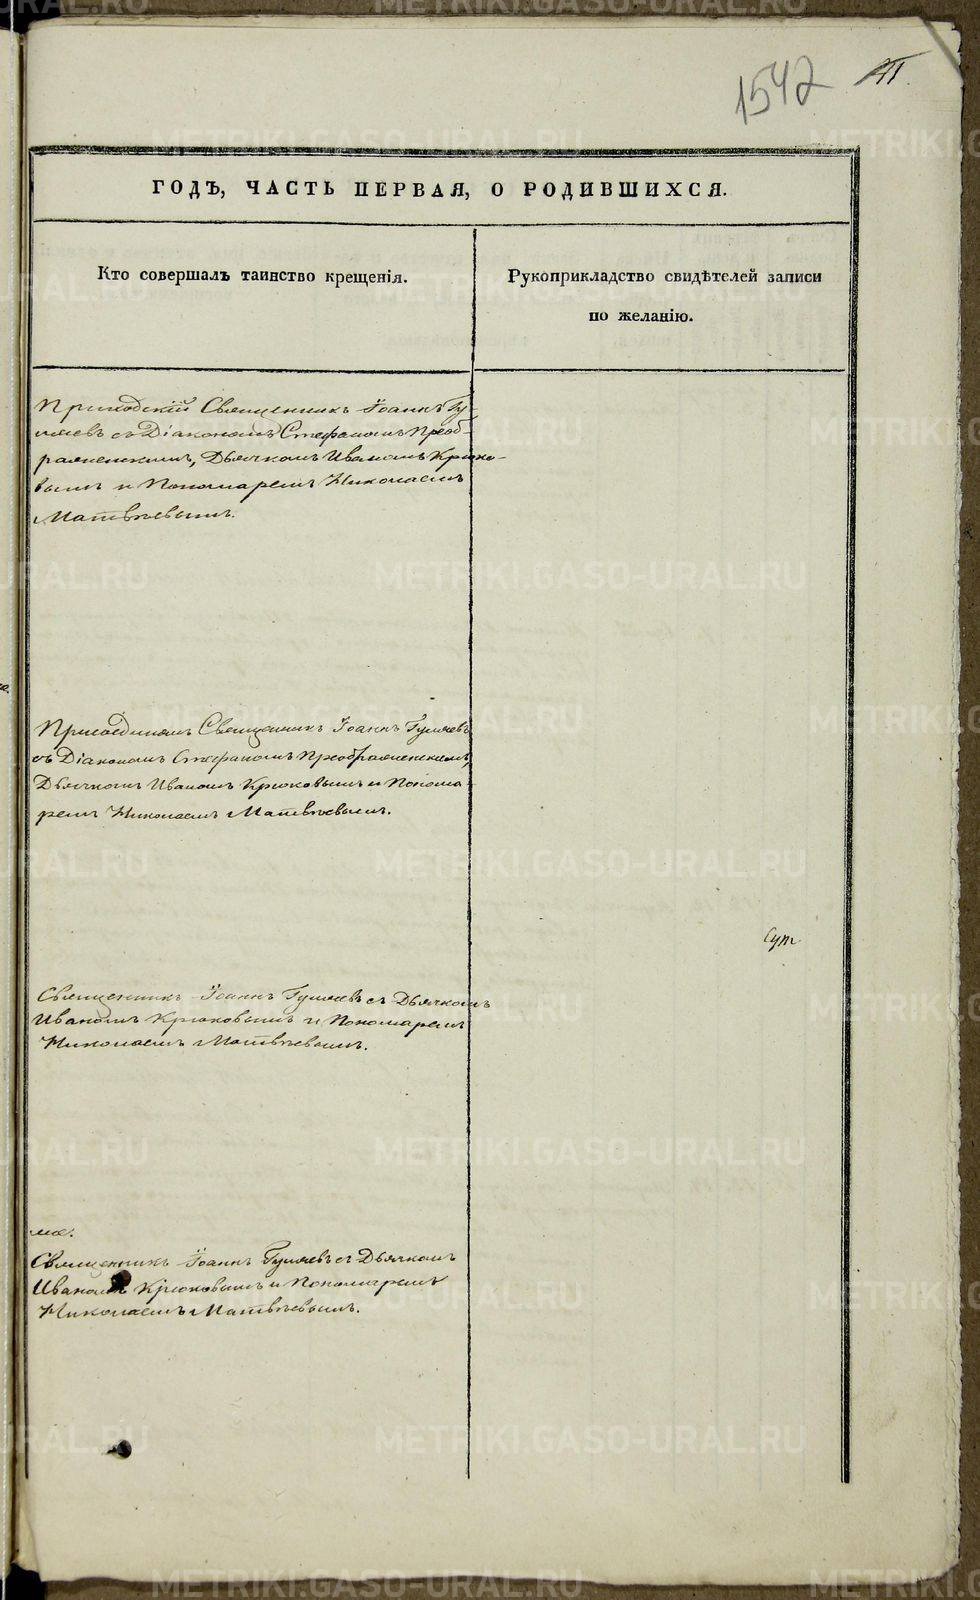 1542
ГОДЪ, ЧАСТЬ ПЕРВАЯ, О РОДИВШИХСЯ.
Кто совершалъ таинство крещенія.
Рукоприкладство свидѣтелей записи
по желанію.
Приходскій Священникъ Іоаннъ Гу-
ляевъ съ Діакономъ Стефаномъ Преоб-
раженскимъ, Дьячкомъ Иваномъ Крюко-
вымъ и Пономаремъ Николаемъ
Матвѣевымъ.
Священникъ Іоаннъ Гуляевъ
съ Діакономъ Стефаномъ Преображенскимъ,
Дьячкомъ Иваномъ Крюковымъ и Понома-
ремъ Николаемъ Матвѣевымъ.
Священникъ Іоаннъ Гуляевъ съ Дьячкомъ
Иваномъ Крюковымъ и Пономаремъ
Николаемъ Матвѣевымъ.
Священникъ Іоаннъ Гуляевъ съ Дьячкомъ
Иваномъ Крюковымъ и Пономаремъ
Николаемъ Матвѣевымъ.
METRIKI.GASO-URAL.RU